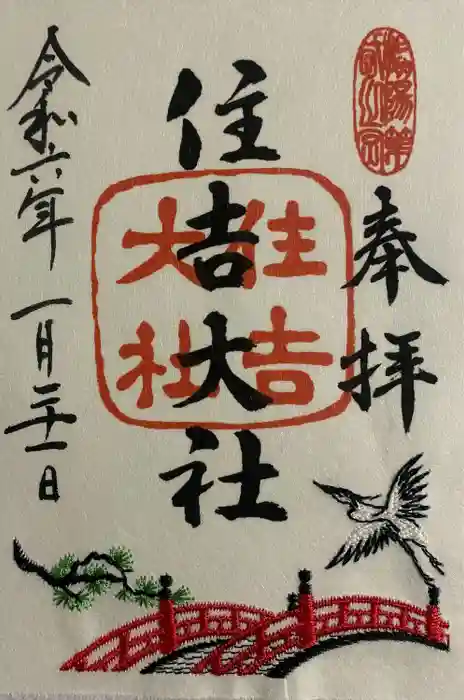 奉拝
住吉大社
住吉
大社
令和六年 一月二十一日